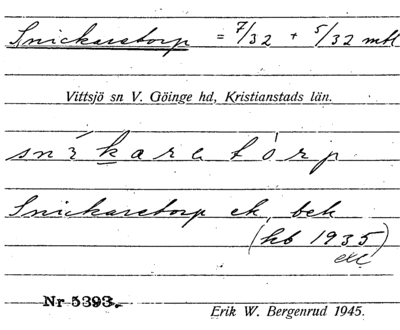 Snickaretorp = 7/32 + 5/32 mtl
Vittsjö sn V. Göinge hd, Kristianstads län.
snìkaretòrp
Snickaretorp ek. bek
(kb 1935)
etc
Nr 5393.
Erik W. Bergenrud 1945.